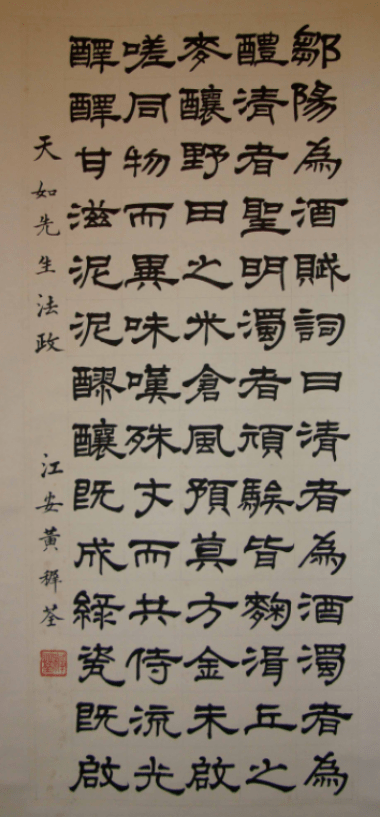 鄒陽為酒賦詞曰清者為酒濁者為
醴清者聖明濁者頑騃皆麴湒丘之
麥釀野田之米倉風預莫方金未啟
嗟同物而異味嘆殊才而共侍流光
醳醳甘滋泥泥醪釀既成綠瓷既啟
天如先生法政
江安黃穉荃